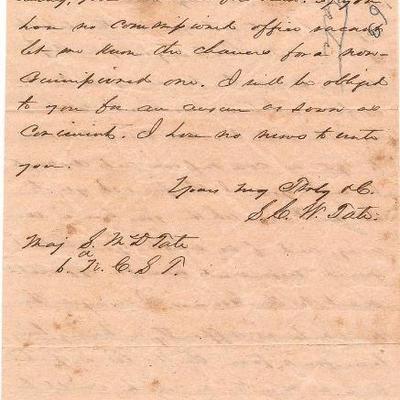 have no commissioned office vacant
let me know the chances for a non-
commissioned one. I will be obliged
to you for an answer as soon as
convenient. I have no news to write
you.
Yours very Truly &C.
S. C. W. Tate.
Maj S. McD Tate
6. N. C. S. T.